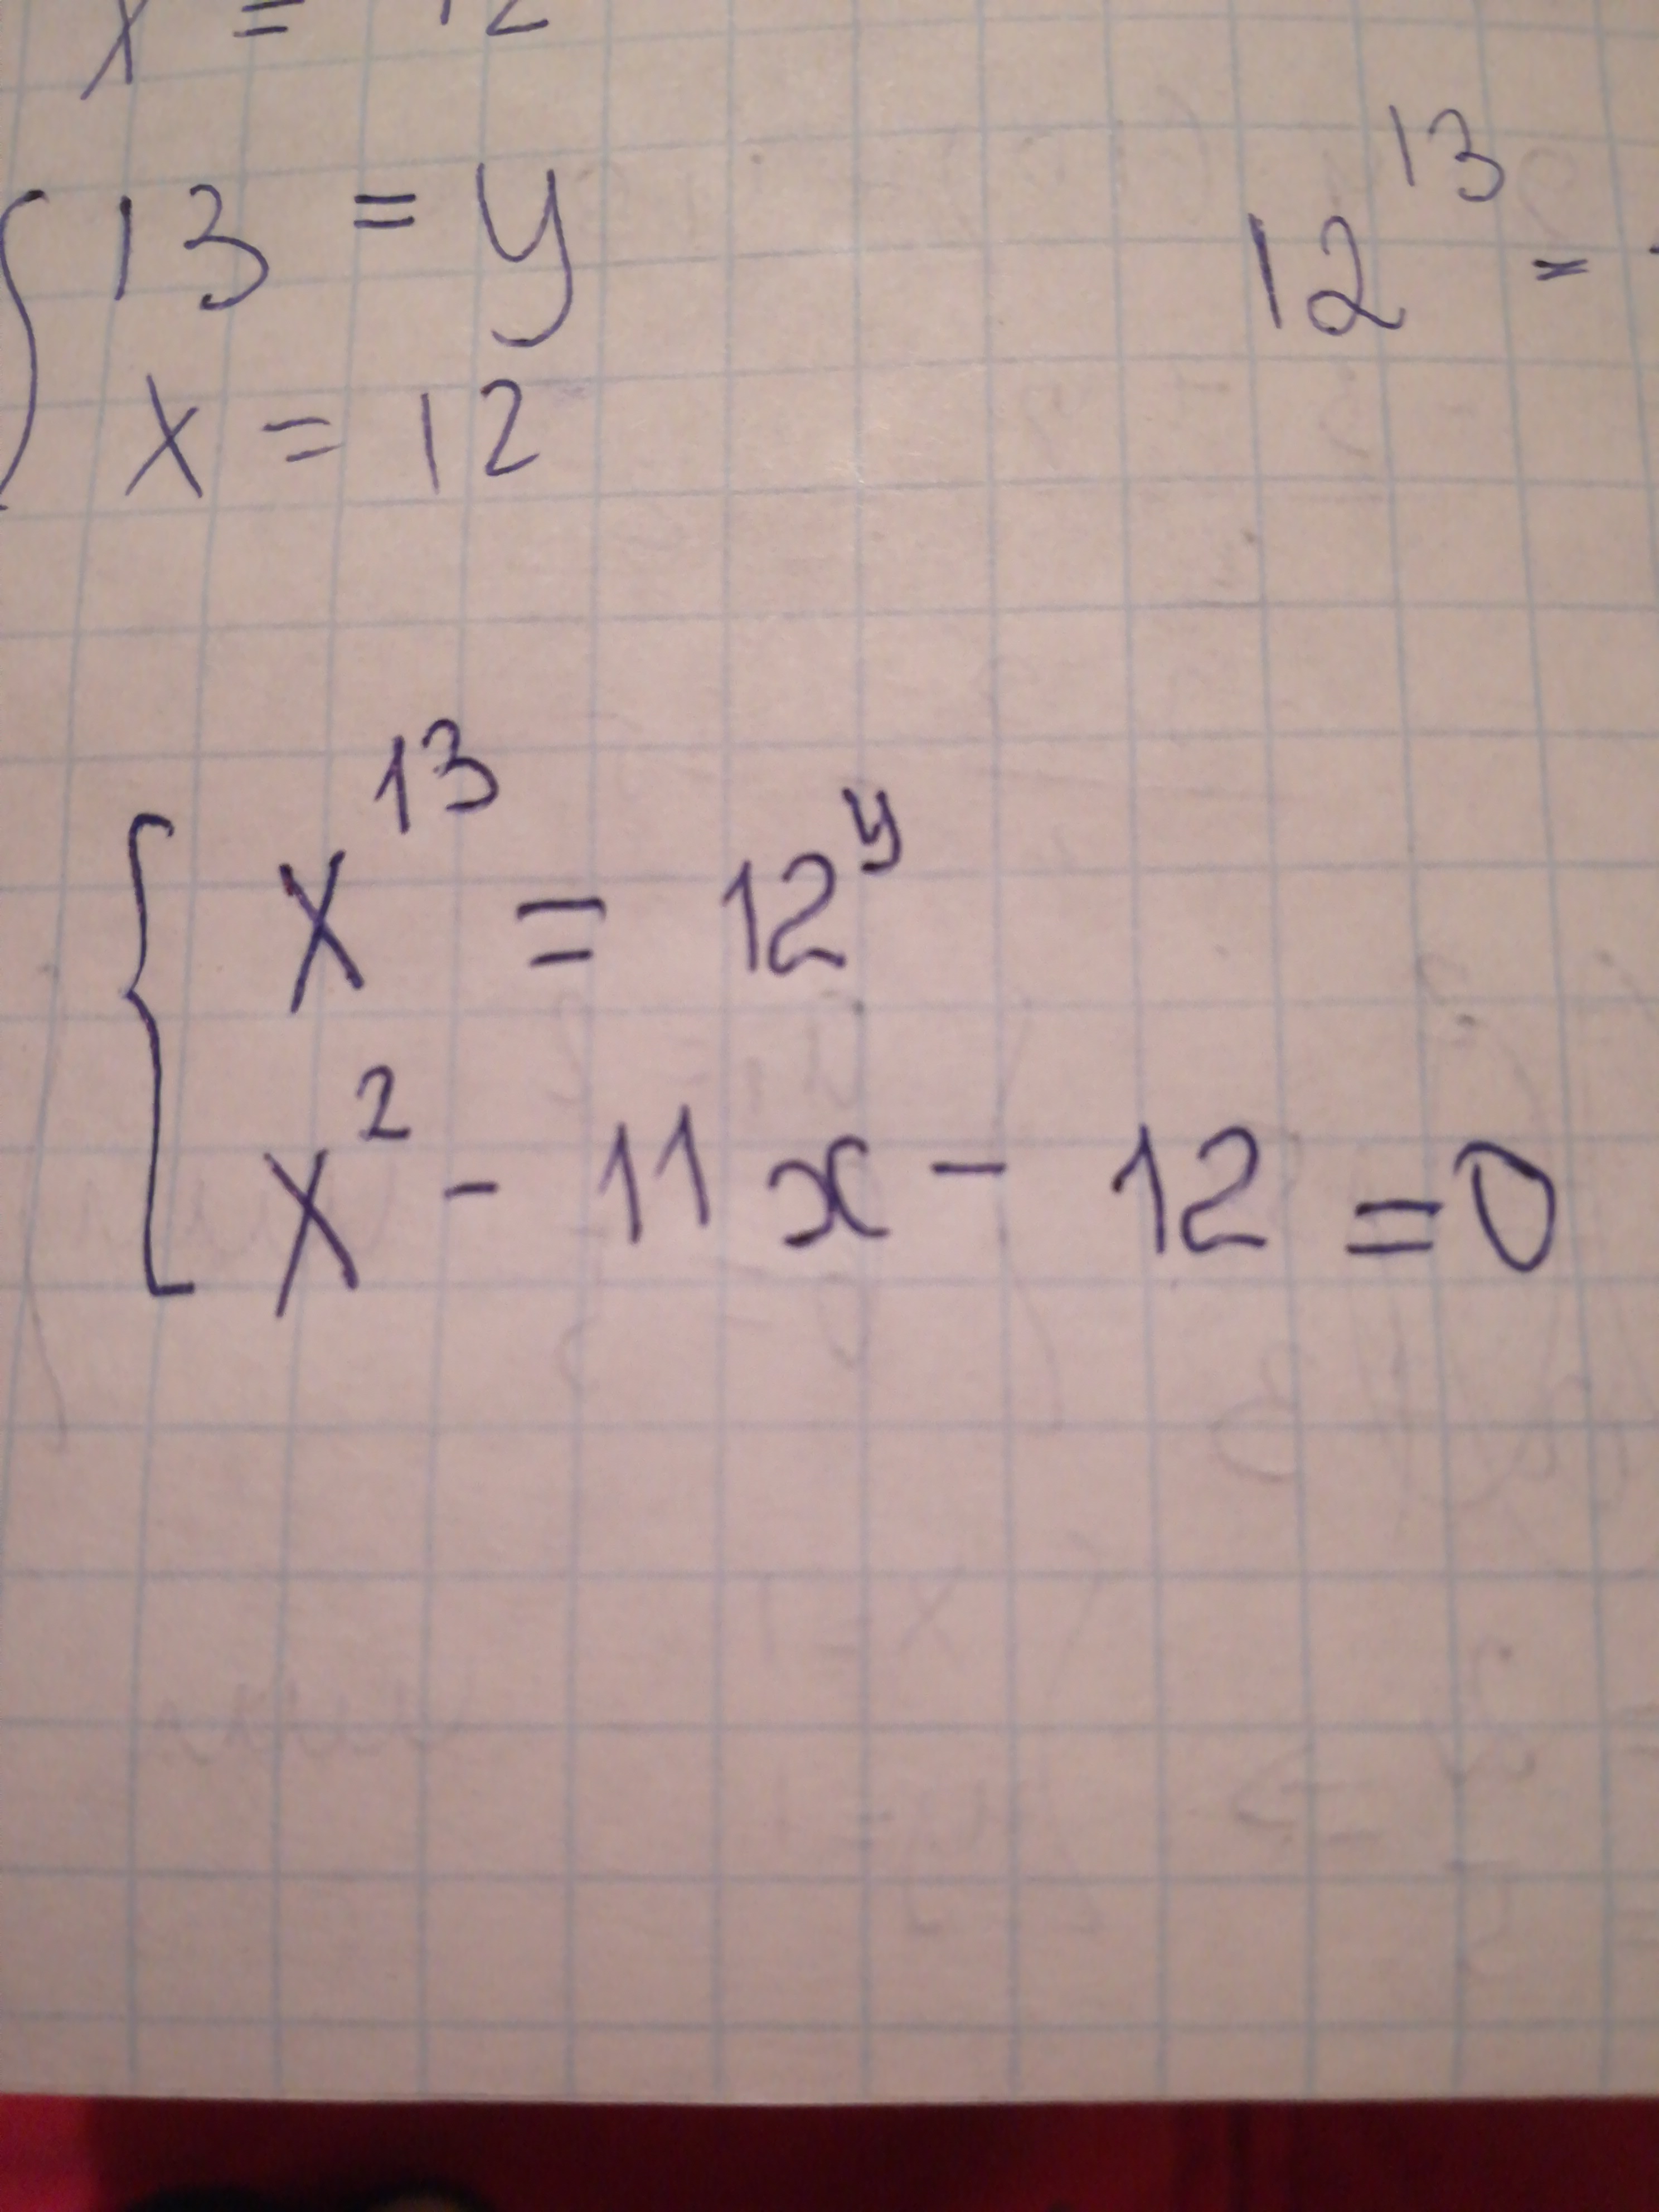 x = 12
{ 13 = y
x = 12
12¹³ =
{ x¹³ = 12ʸ
x² - 11x - 12 = 0